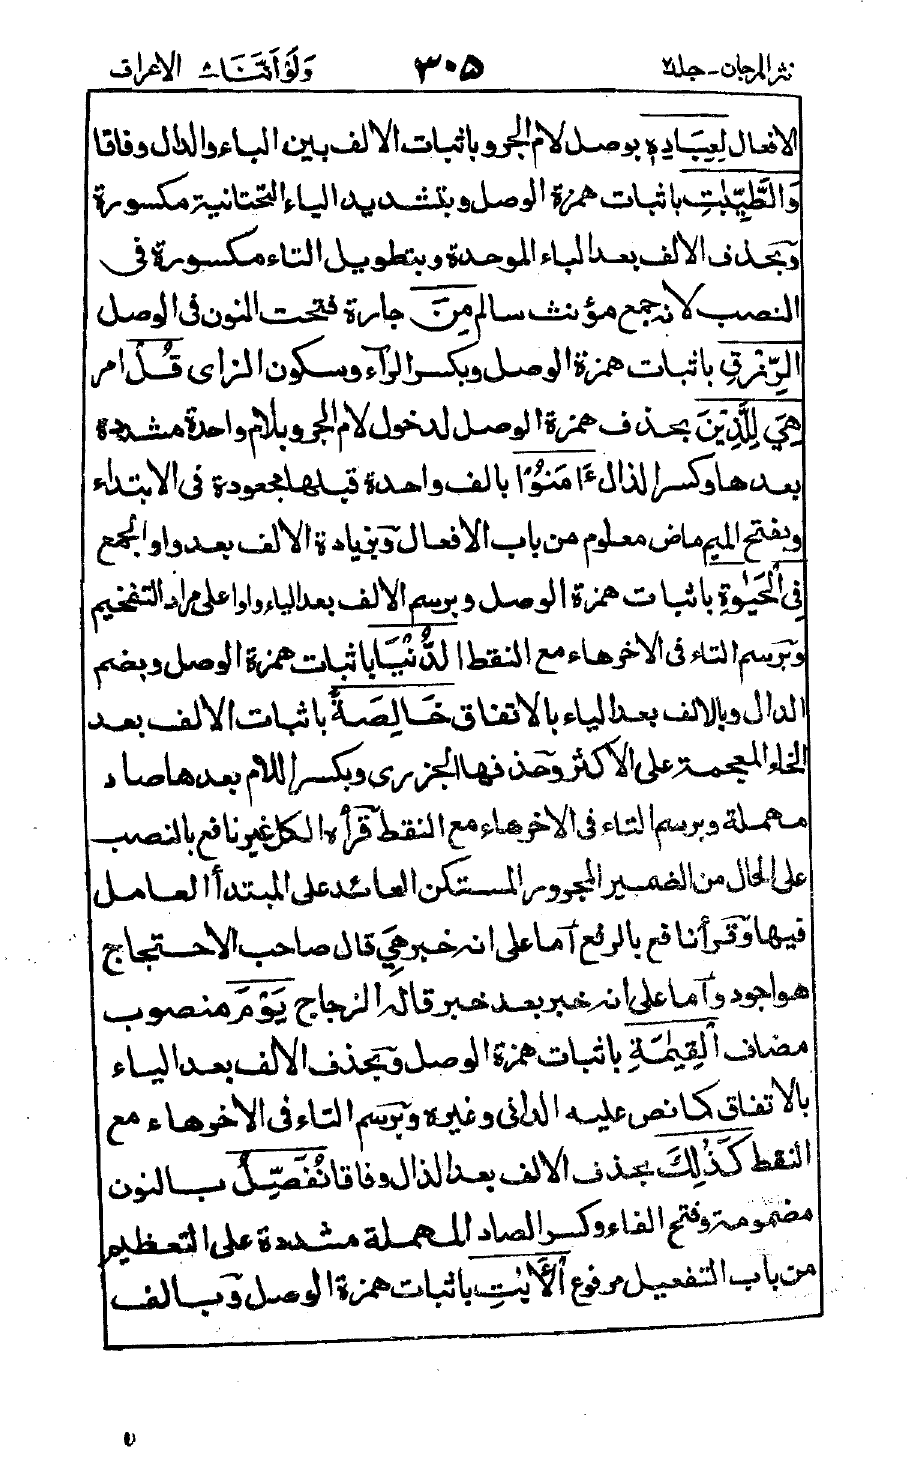 نثر المرجان - جلد ٢ ٣٠٥ وَلَوْ أَنَّنَا ٨ الاعراف
الافعال لِعِبَادِهٖ بوصل لام الجر وباثبات الالف بين الباء والدال وفاقا
وَالطَّيِّبٰتِ باثبات همزة الوصل وبتشديد الياء التحتانية مكسورة
وبحذف الالف بعد الباء الموحدة وبتطويل التاء مكسورة فى
النصب لانه جمع مؤنث سالم مِنَ جارة فتحت النون فى الوصل
الرِّزْقِ باثبات همزة الوصل وبكسر الرآء وسكون الزاى قُلْ امر
هِيَ لِلَّذِيْنَ بحذف همزة الوصل لدخول لام الجر وبلام واحدة مشددة
بعدها وكسر الذال ءَامَنُوْا بالف واحدة قبلها مجعودة فى الابتداء
وبفتح الميم ماض معلوم من باب الافعال وبزيادة الالف بعد واو الجمع
فِى الْحَيٰوةِ باثبات همزة الوصل وبرسم الالف بعد الياء واوا على مراد التفخيم
وبرسم التاء فى الاخر هاء مع النقط الدُّنْيَا باثبات همزة الوصل وبضم
الدال وبالالف بعد الياء بالاتفاق خَالِصَةً باثبات الالف بعد
الخاء المعجمة على الاكثر وحذفها الجزرى وبكسر اللام بعدها صاد
مهملة وبرسم التاء فى الاخر هاء مع النقط قرأه الكل غير نافع بالنصب
على الحال من الضمير المجرور المستكن العائد على المبتدأ العامل
فيها وقرأ نافع بالرفع اما على انه خبر هِيَ قال صاحب الاحتجاج
هو اجود واما على انه خبر بعد خبر قاله الزجاج يَوْمَ منصوب
مضاف الْقِيٰمَةِ باثبات همزة الوصل وبحذف الالف بعد الياء
بالاتفاق كما نص عليه الدانى وغيره وبرسم التاء فى الاخر هاء مع
النقط كَذٰلِكَ بحذف الالف بعد الذال وفاقا نُفَصِّلُ بالنون
مضمومة وفتح الفاء وكسر الصاد المهملة مشددة على التعظيم
من باب التفعيل مرفوع الْاٰيٰتِ باثبات همزة الوصل وبالف